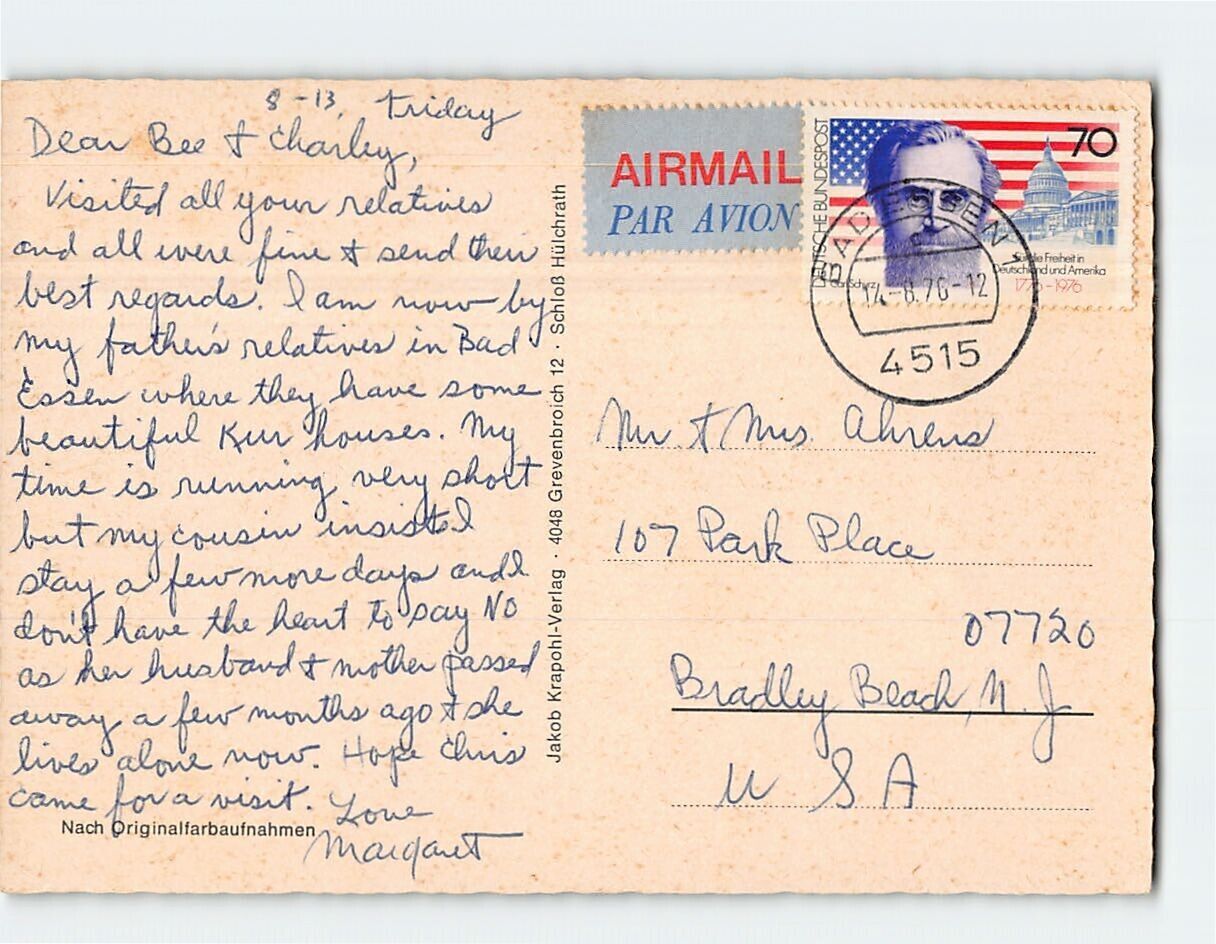 8-13, Friday
Dear Bee & Charley,
Visited all your relatives
and all were fine & send their
best regards. I am now by
my father's relatives in Bad
Essen where they have some
beautiful Kur houses. My
time is running very short
but my cousin insisted I
stay a few more days and I
don't have the heart to say NO
as her husband & mother passed
away a few months ago & she
lives alone now. Hope Chris
came for a visit. Love
Margaret
Nach Originalfarbaufnahmen
Jakob Krapohl-Verlag · 4048 Grevenbroich 12 · Schloß Hülchrath
AIRMAIL
PAR AVION
DEUTSCHE BUNDESPOST
70
Carl Schurz
Für die Freiheit in
Deutschland und Amerika
1776-1976
BAD ESSEN 1
14.-8.76-12
4515
Mr & Mrs. Ahrens
107 Park Place
07720
Bradley Beach, N. J
U S A